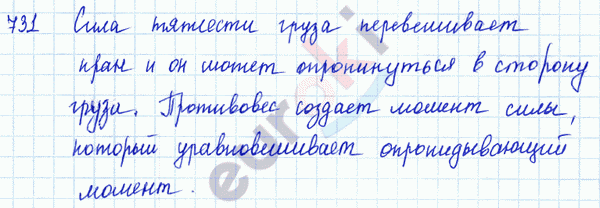 731 Сила тяжести груза перевешивает
кран и он может опрокинуться в сторону
груза. Противовес создает момент силы,
который уравновешивает опрокидывающий
момент.
euroki